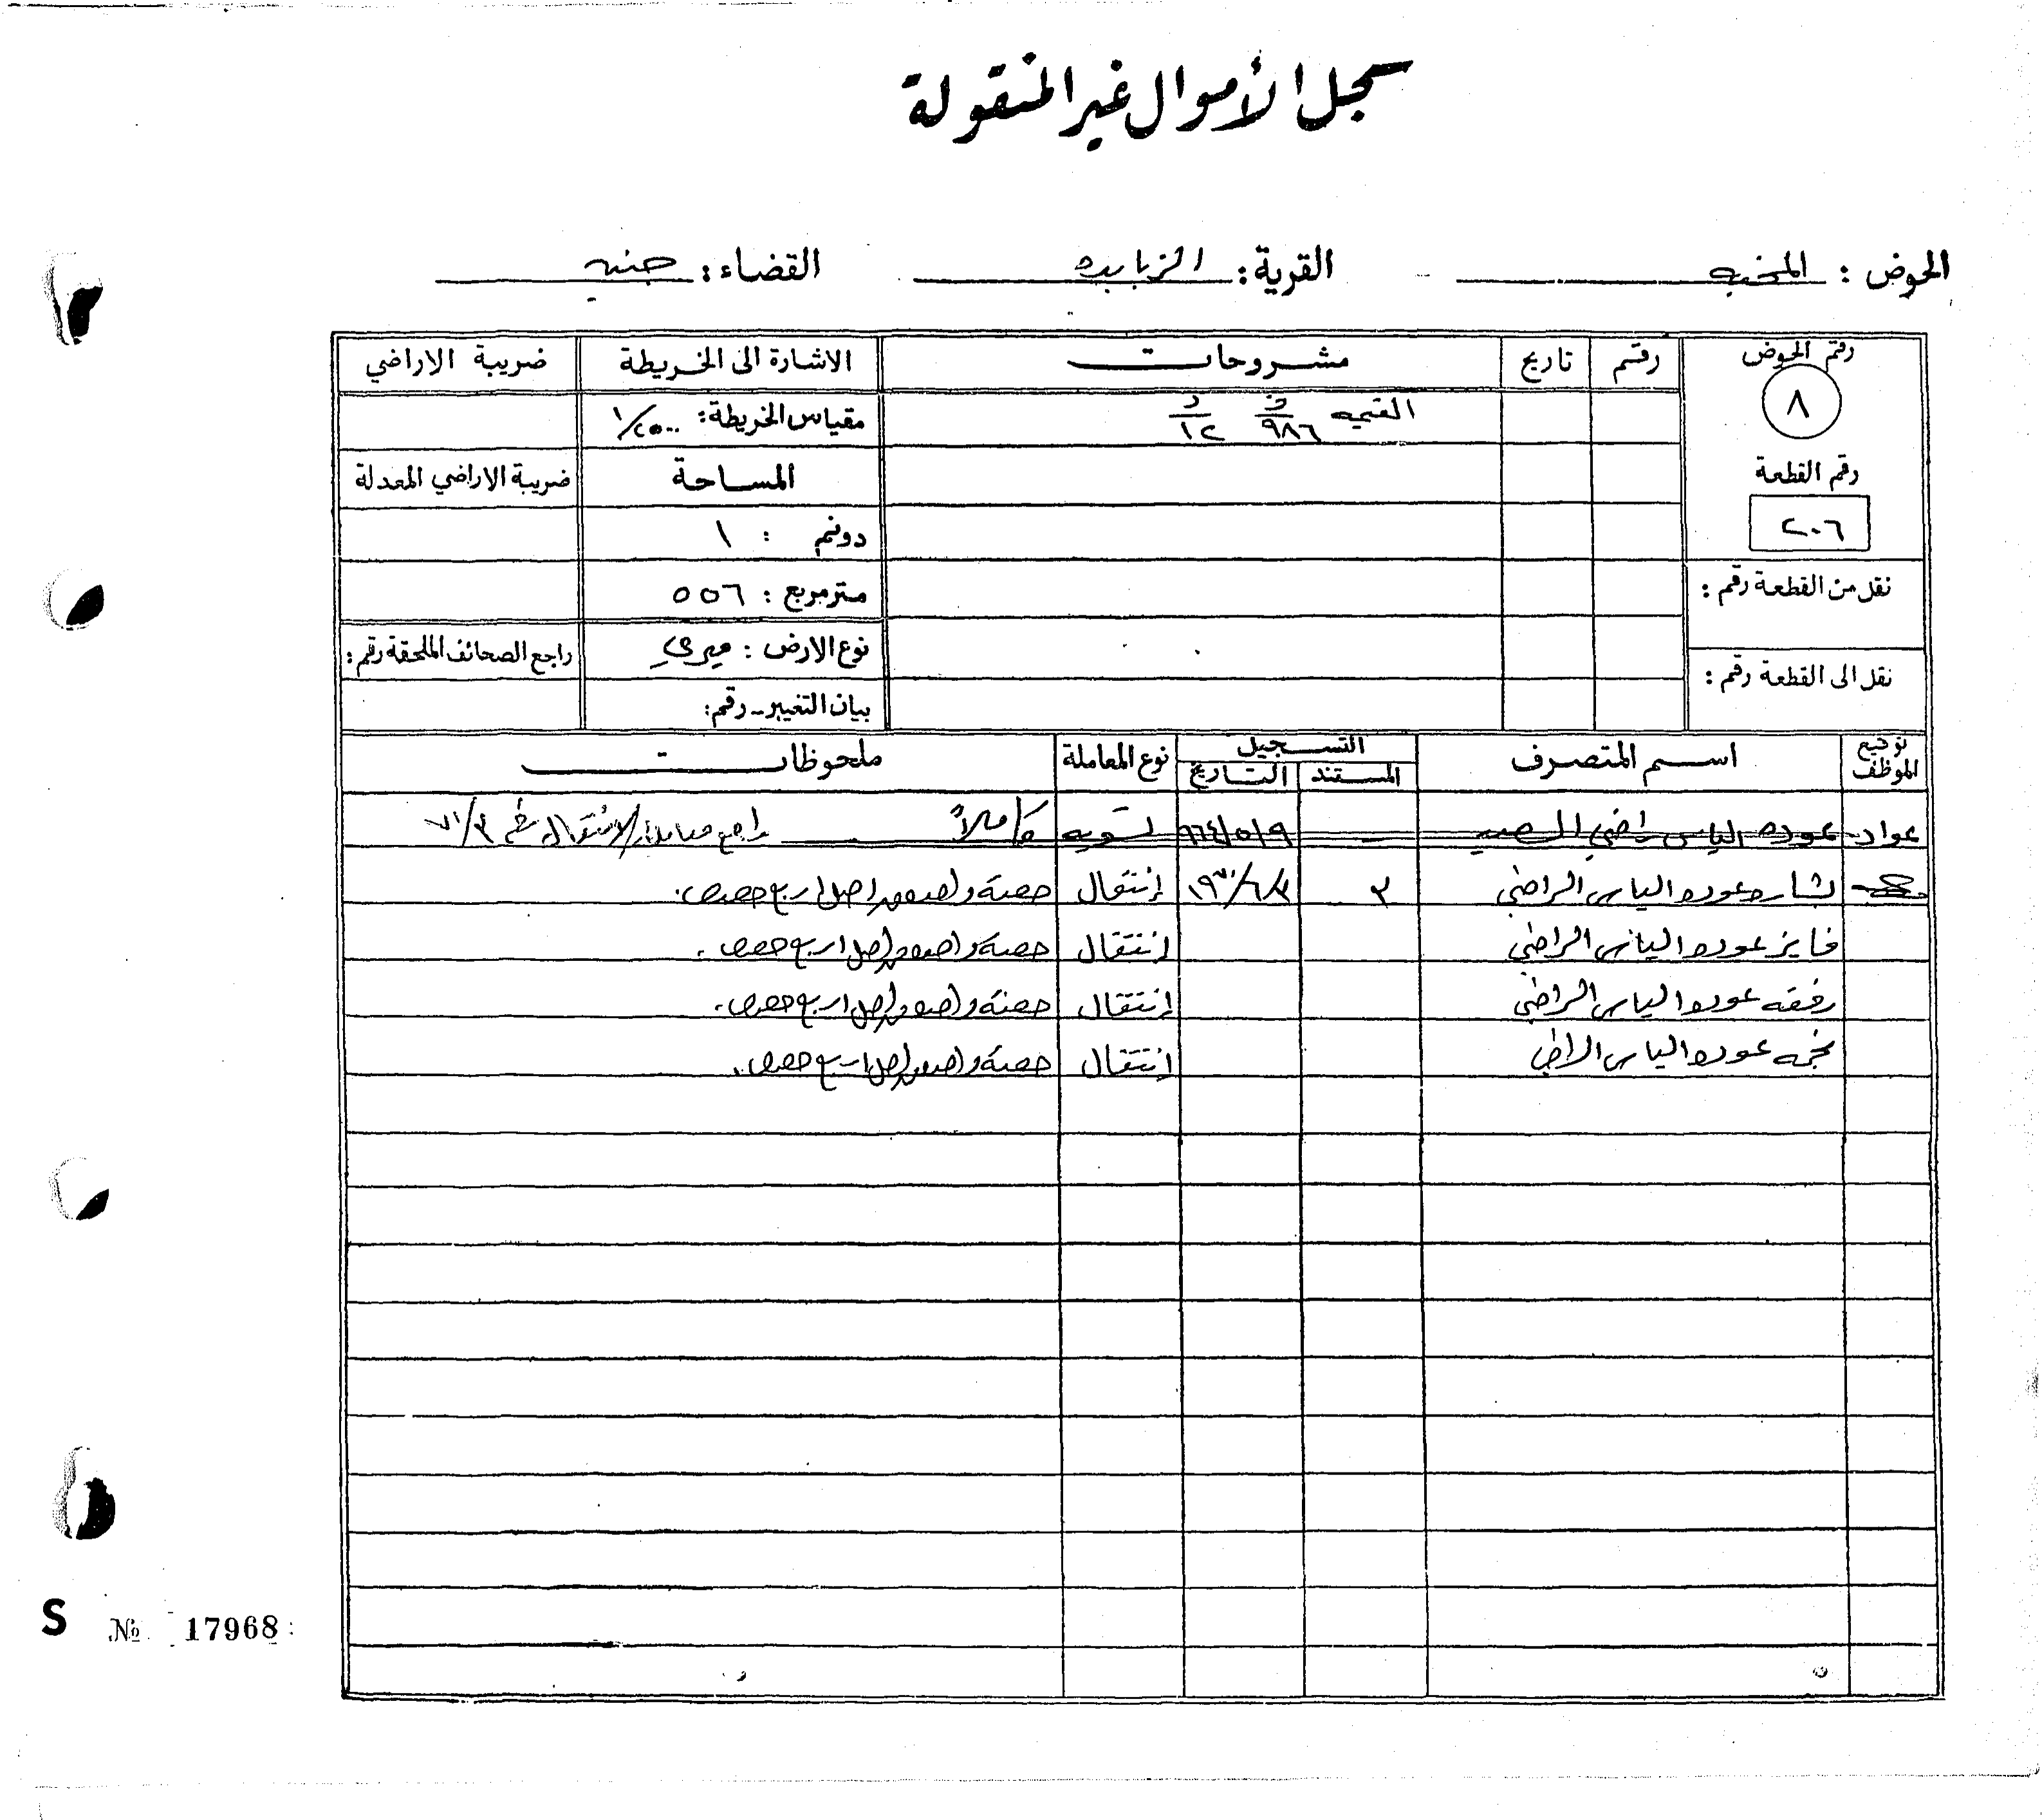 سجل الأموال غير المنقولة
الحوض : القرية : الزبابده القضاء : جنين
رقم الحوض رقم تاريخ مشروحات الاشارة الى الخريطة ضريبة الاراضي
٨ القيمه ف د مقياس الخريطة : ١/٢٥٠٠
٩٨٦ ١٢
رقم القطعة المساحة ضريبة الاراضي المعدلة
٢٠٦ دونم : ١
نقل من القطعة رقم : مترمربع : ٥٥٦
نوع الارض : ميري راجع الصحائف الملحقة رقم :
نقل الى القطعة رقم :
بيان التغيير - رقم :
توقيع الموظف اسم المتصرف التسجيل نوع المعاملة ملحوظات
المستند التاريخ
عواد عوده الياس راضي ٩٦٤/٥/٩ تسويه كاملاً راجع معاملة الانتقال رقم
بشاره عوده الياس الراضي ٣ إنتقال حصة واحده من اصل اربع حصص.
فايز عوده الياس الراضي إنتقال حصة واحده من اصل اربع حصص.
رفقه عوده الياس الراضي إنتقال حصة واحده من اصل اربع حصص.
نجمه عوده الياس الراضي إنتقال حصة واحده من اصل اربع حصص.
S № 17968